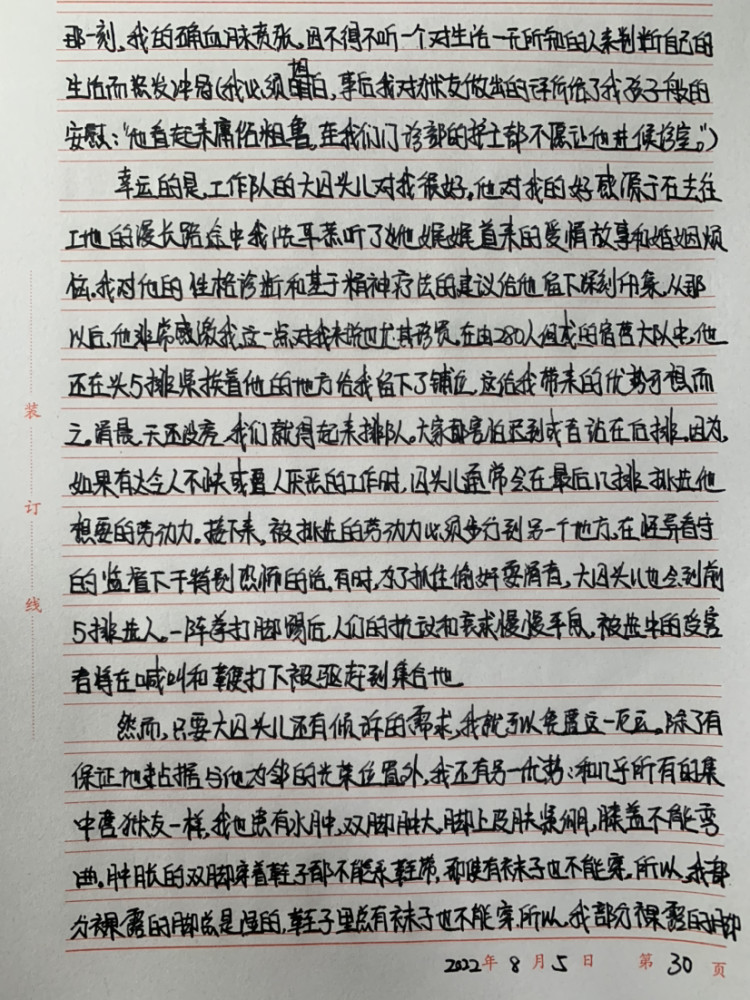 那一刻,我的确血脉贲张。因不得不听一个对生活一无所知的人来判断自己的
生活而热发冲冠(我必须坦白,事后我对狱友做出的评价给了我孩子般的
安慰:“他看起来庸俗粗鲁,在我们门诊部的护士都不愿让他进候诊室。”)
幸运的是,工作队的大囚头儿对我很好。他对我的好感源于在去往
工地的漫长路途中我俯耳恭听了他娓娓道来的爱情故事和婚姻烦
恼。我对他的性格诊断和基于精神疗法的建议给他留下深刻印象。从那
以后,他非常感激我,这一点对我来说也尤其珍贵。在由280人组成的宿营大队中,他
还在头5排紧挨着他的地方给我留下了铺位,这给我带来的优势可想而
之。清晨,天还没亮,我们就得起来排队。大家都害怕迟到或者站在后排。因为,
如果有太令人不快或遭人厌恶的工作时,囚头儿通常会在最后几排挑选他
想要的劳动力。接下来,被挑选的劳动力必须步行到另一个地方,在怪异看守
的监督下干特别恐怖的活。有时,为了抓住偷奸耍滑者,大囚头儿也会到前
5排选人。一阵拳打脚踢后,人们的抗议和哀求慢慢平息。被选中的受害
者将在喊叫和鞭打下被驱赶到集合地
然而,只要大囚头儿还有倾诉的需求,我就可以免遭这一厄运。除了有
保证地占据与他为邻的光荣位置外,我还有另一优势:和几乎所有的集
中营狱友一样,我也患有水肿,双脚肿大,脚上皮肤紧绷,膝盖不能弯
曲。肿胀的双脚穿着鞋子都不能系鞋带,即使有袜子也不能穿。所以,我部
分裸露的脚总是湿的,鞋子里总有袜子也不能穿.所以,我部分裸露的脚
装
订
线
2022年8月5日 第30页